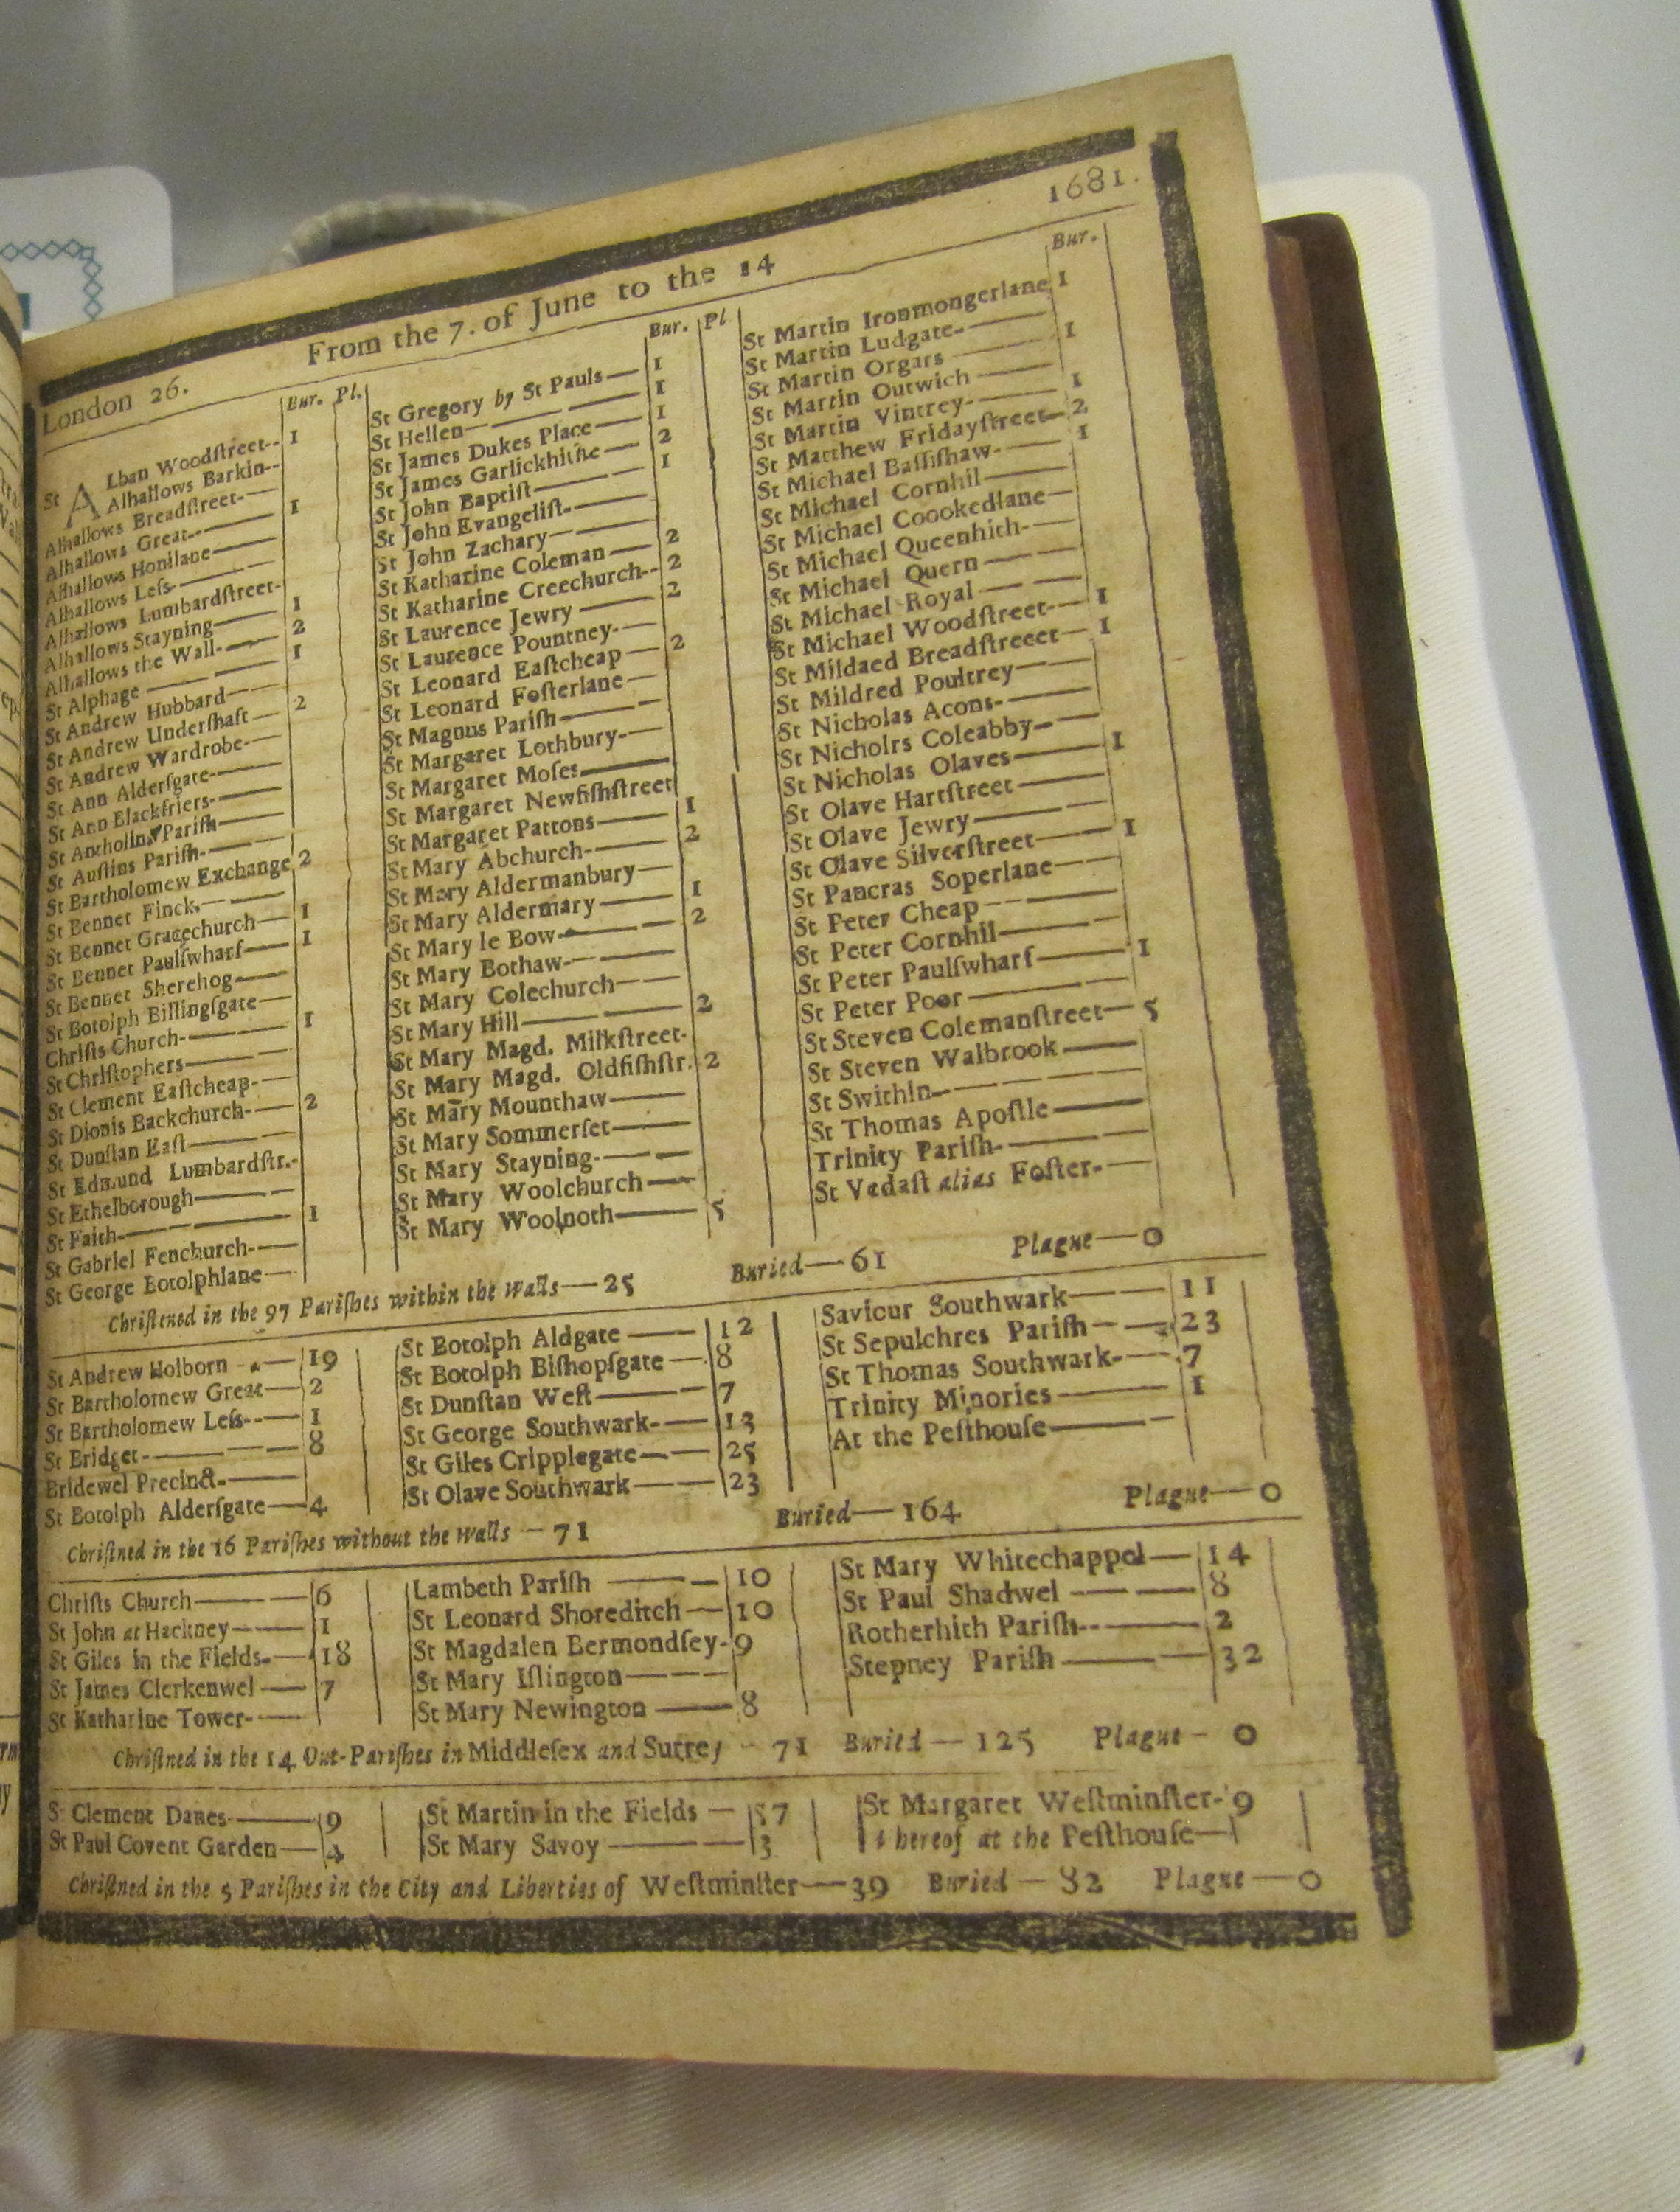 London 26. From the 7. of June to the 14 1681.
Bur. Pl.
St ALban Woodſtreet-- 1
Alhallows Barkin--
Alhallows Breadſtreet-
Alhallows Great-- 1
Alhallows Honilane
Alhallows Leſs
Alhallows Lumbardſtreet-
Alhallows Stayning 1
Alhallows the Wall- 2
St Alphage 1
St Andrew Hubbard
St Andrew Underſhaft 2
St Andrew Wardrobe-
St Ann Alderſgate-
St Ann Blackfriers-
St Antholins Pariſh
St Auſtins Pariſh-
St Bartholomew Exchange 2
St Bennet Finck
St Bennet Gracechurch 1
St Bennet Paulſwharf 1
St Bennet Sherehog
St Botolph Billingſgate
Chriſts Church- 1
St Chriſtophers
St Clement Eaſtcheap-
St Dionis Backchurch- 2
St Dunſtan Eaſt
St Edmund Lumbardſtr.-
St Ethelborough
St Faith 1
St Gabriel Fenchurch-
St George Botolphlane
Bur. Pl
St Gregory by St Pauls 1
St Hellen 1
St James Dukes Place 1
St James Garlickhithe 2
St John Baptiſt 1
St John Evangeliſt-
St John Zachary
St Katharine Coleman 2
St Katharine Creechurch-- 2
St Laurence Jewry 2
St Laurence Pountney-
St Leonard Eaſtcheap 2
St Leonard Foſterlane
St Magnus Pariſh
St Margaret Lothbury-
St Margaret Moſes
St Margaret Newfiſhſtreet
St Margaret Pattons 1
St Mary Abchurch- 2
St Mary Aldermanbury
St Mary Aldermary 1
St Mary le Bow 2
St Mary Bothaw-
St Mary Colechurch
St Mary Hill 2
St Mary Magd. Milkſtreet-
St Mary Magd. Oldfiſhſtr. 2
St Mary Mounthaw
St Mary Sommerſet
St Mary Stayning-
St Mary Woolchurch
St Mary Woolnoth 5
Bur.
St Martin Ironmongerlane 1
St Martin Ludgate-
St Martin Orgars 1
St Martin Outwich
St Martin Vintrey- 1
St Matthew Fridayſtreet 2
St Michael Baſſiſhaw- 1
St Michael Cornhil
St Michael Coookedlane
St Michael Queenhith-
St Michael Quern
St Michael Royal
St Michael Woodſtreet- 1
St Mildaed Breadſtreeet 1
St Mildred Poultrey
St Nicholas Acons-
St Nicholrs Coleabby
St Nicholas Olaves 1
St Olave Hartſtreet
St Olave Jewry
St Olave Silverſtreet 1
St Pancras Soperlane
St Peter Cheap
St Peter Cornhil
St Peter Paulſwharf 1
St Peter Poor
St Steven Colemanſtreet 5
St Steven Walbrook
St Swithin
St Thomas Apoſtle
Trinity Pariſh-
St Vedaſt alias Foſter-
Chriſtned in the 97 Pariſhes within the Walls—25 Buried—61 Plague—0
St Andrew Holborn 19
St Bartholomew Great 2
St Bartholomew Leſs-- 1
St Bridget- 8
Bridewel Precinct-
St Botolph Alderſgate 4
St Botolph Aldgate 12
St Botolph Biſhopſgate 8
St Dunſtan Weſt 7
St George Southwark- 13
St Giles Cripplegate 25
St Olave Southwark 23
Saviour Southwark 11
St Sepulchres Pariſh 23
St Thomas Southwark- 7
Trinity Minories 1
At the Peſthouſe
Chriſtned in the 16 Pariſhes without the Walls—71 Buried—164 Plague—0
Chriſts Church 6
St John at Hackney 1
St Giles in the Fields- 18
St James Clerkenwel 7
St Katharine Tower-
Lambeth Pariſh 10
St Leonard Shoreditch 10
St Magdalen Bermondſey- 9
St Mary Iſlington
St Mary Newington 8
St Mary Whitechappel 14
St Paul Shadwel 8
Rotherhith Pariſh-- 2
Stepney Pariſh 32
Chriſtned in the 14 Out-Pariſhes in Middleſex and Surrey - 71 Buried—125 Plague- 0
St Clement Danes 9
St Paul Covent Garden 4
St Martin in the Fields 57
St Mary Savoy 3
St Margaret Weſtminſter- 9
thereof at the Peſthouſe
Chriſtned in the 5 Pariſhes in the City and Liberties of Weſtminſter—39 Buried—82 Plague—0